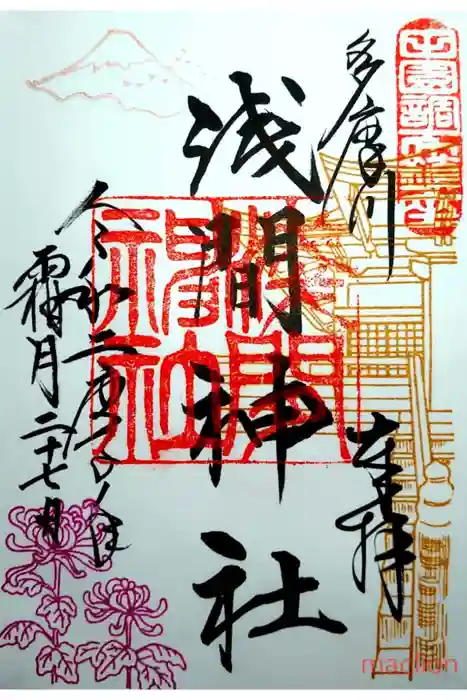 田園調布鎮座
多摩川
奉拝
浅間神社
浅間神社
令和二庚子
霜月二十七日